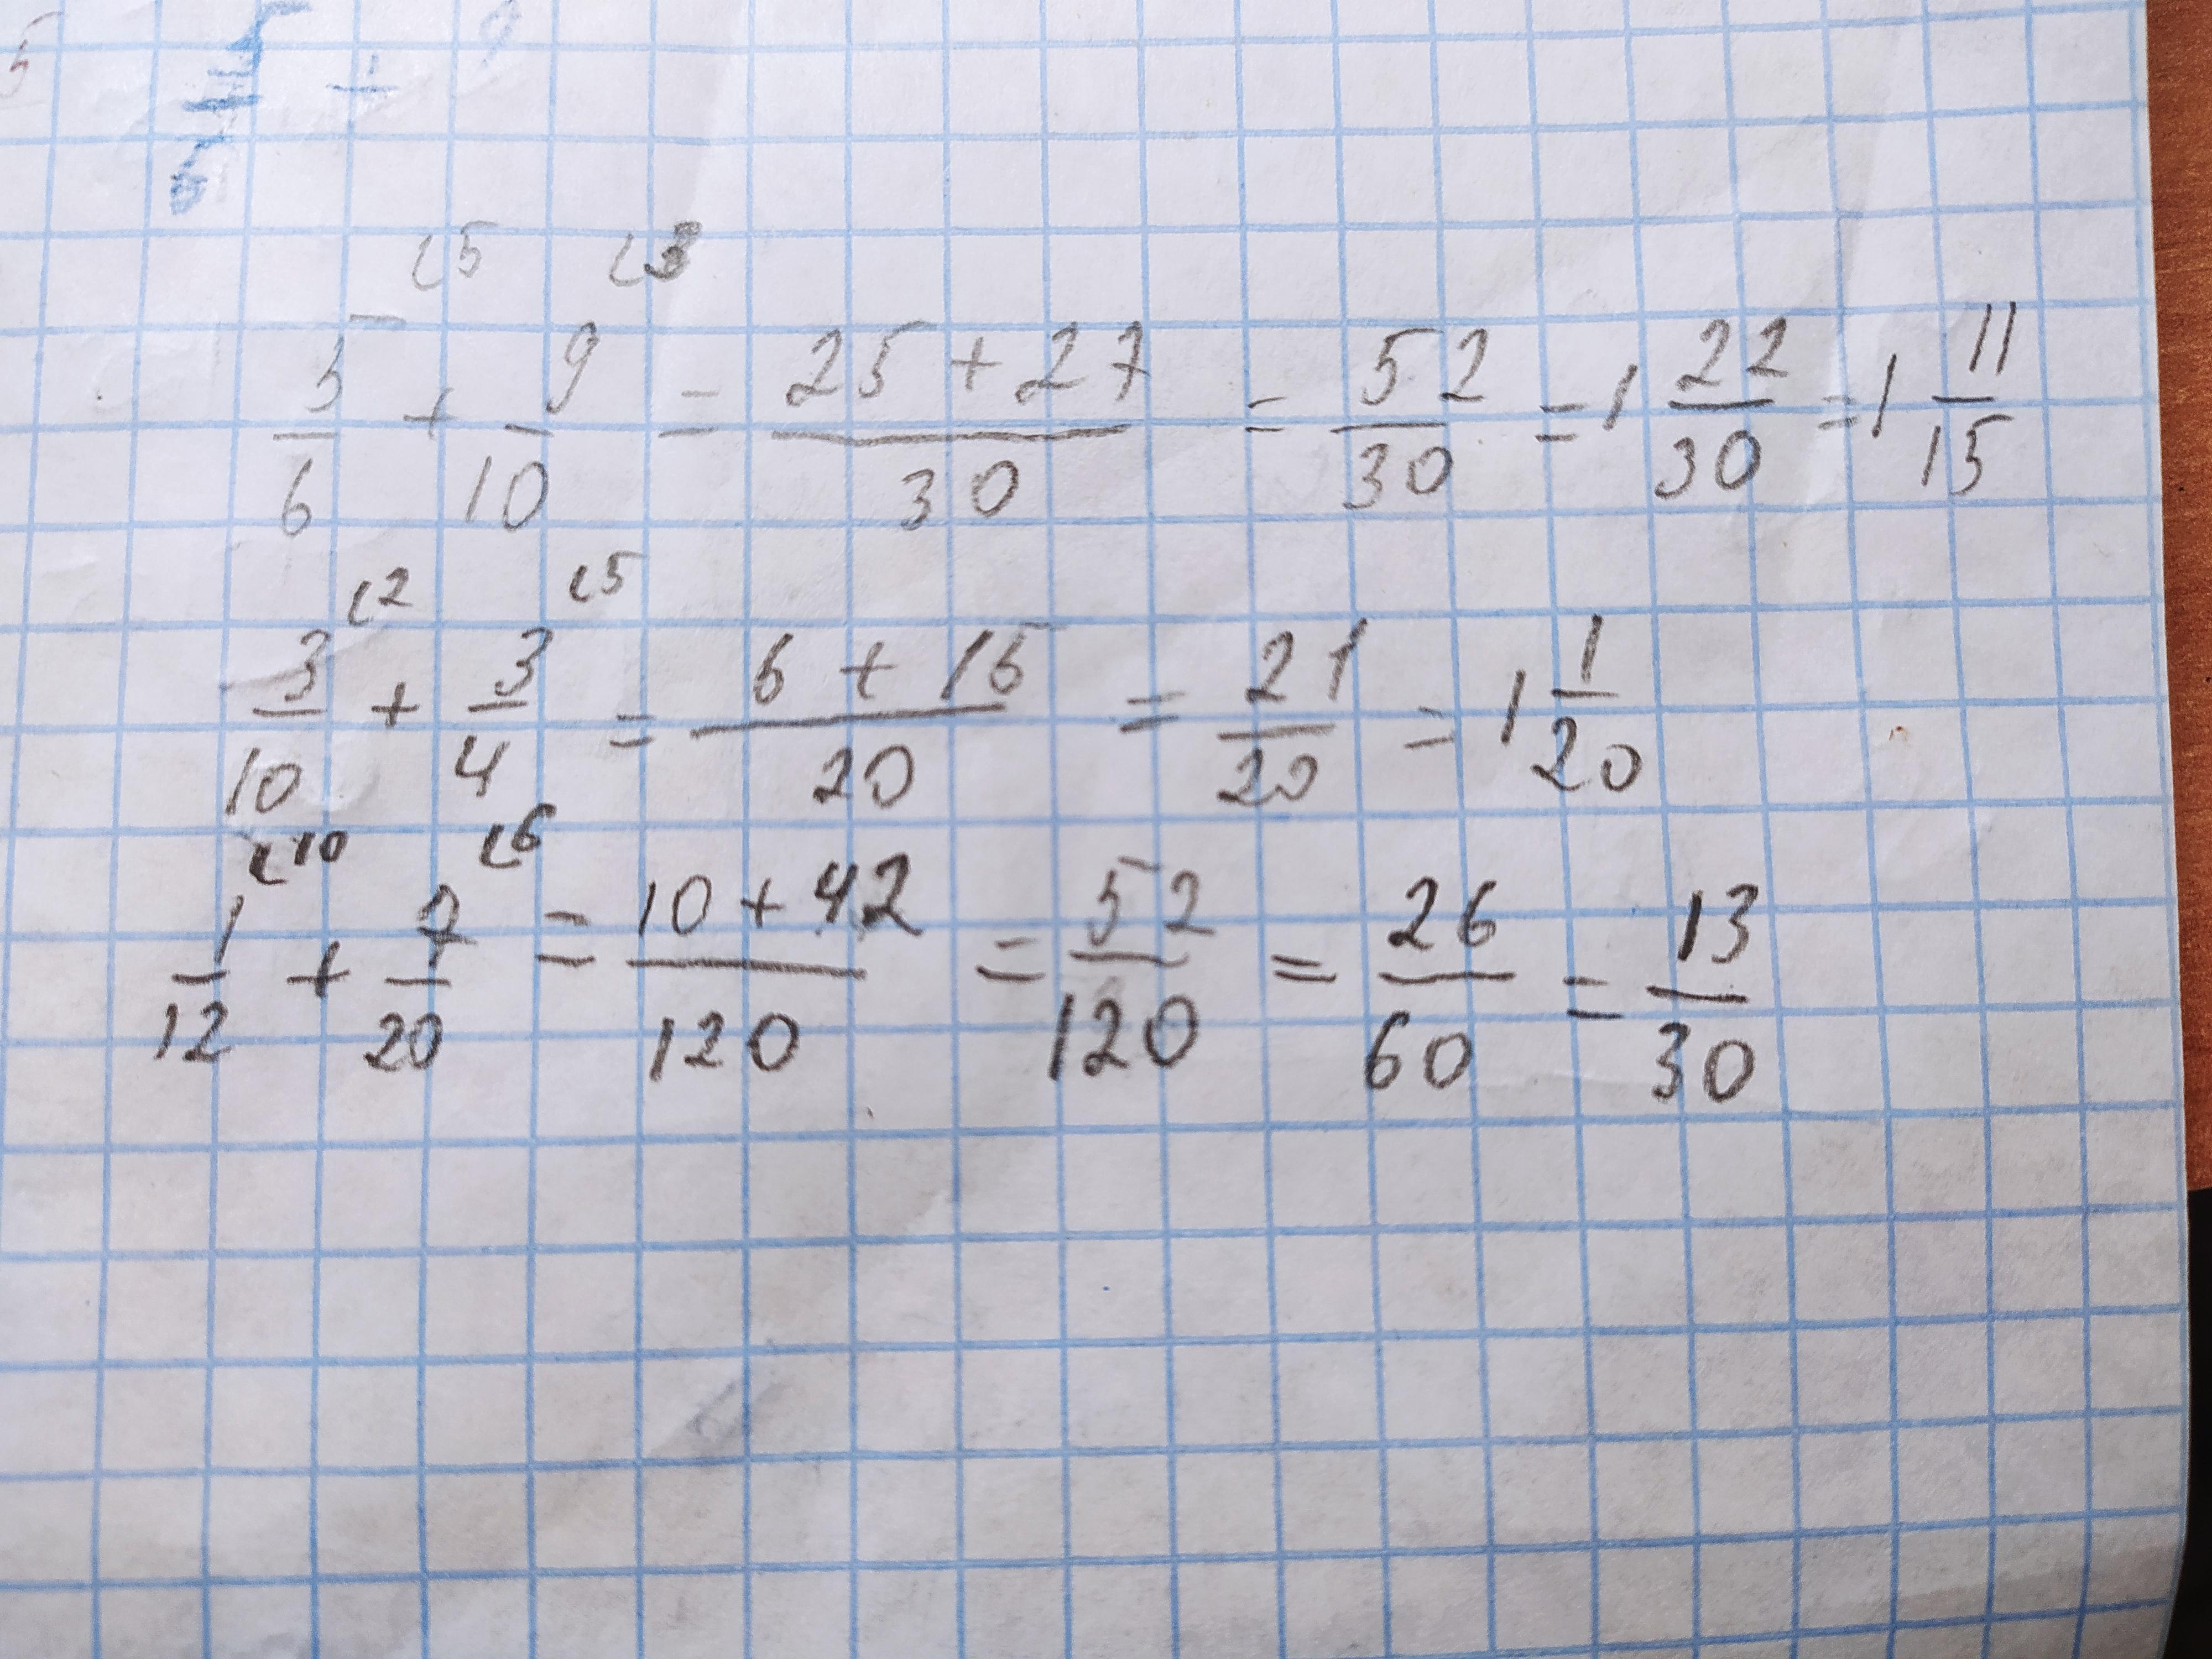 5
5 + 9
6
⌊5 ⌊3
5/6 + 9/10 = 25 + 27/30 = 52/30 = 1 22/30 = 1 11/15
⌊2 ⌊5
3/10 + 3/4 = 6 + 15/20 = 21/20 = 1 1/20
⌊10 ⌊6
1/12 + 7/20 = 10 + 42/120 = 52/120 = 26/60 = 13/30